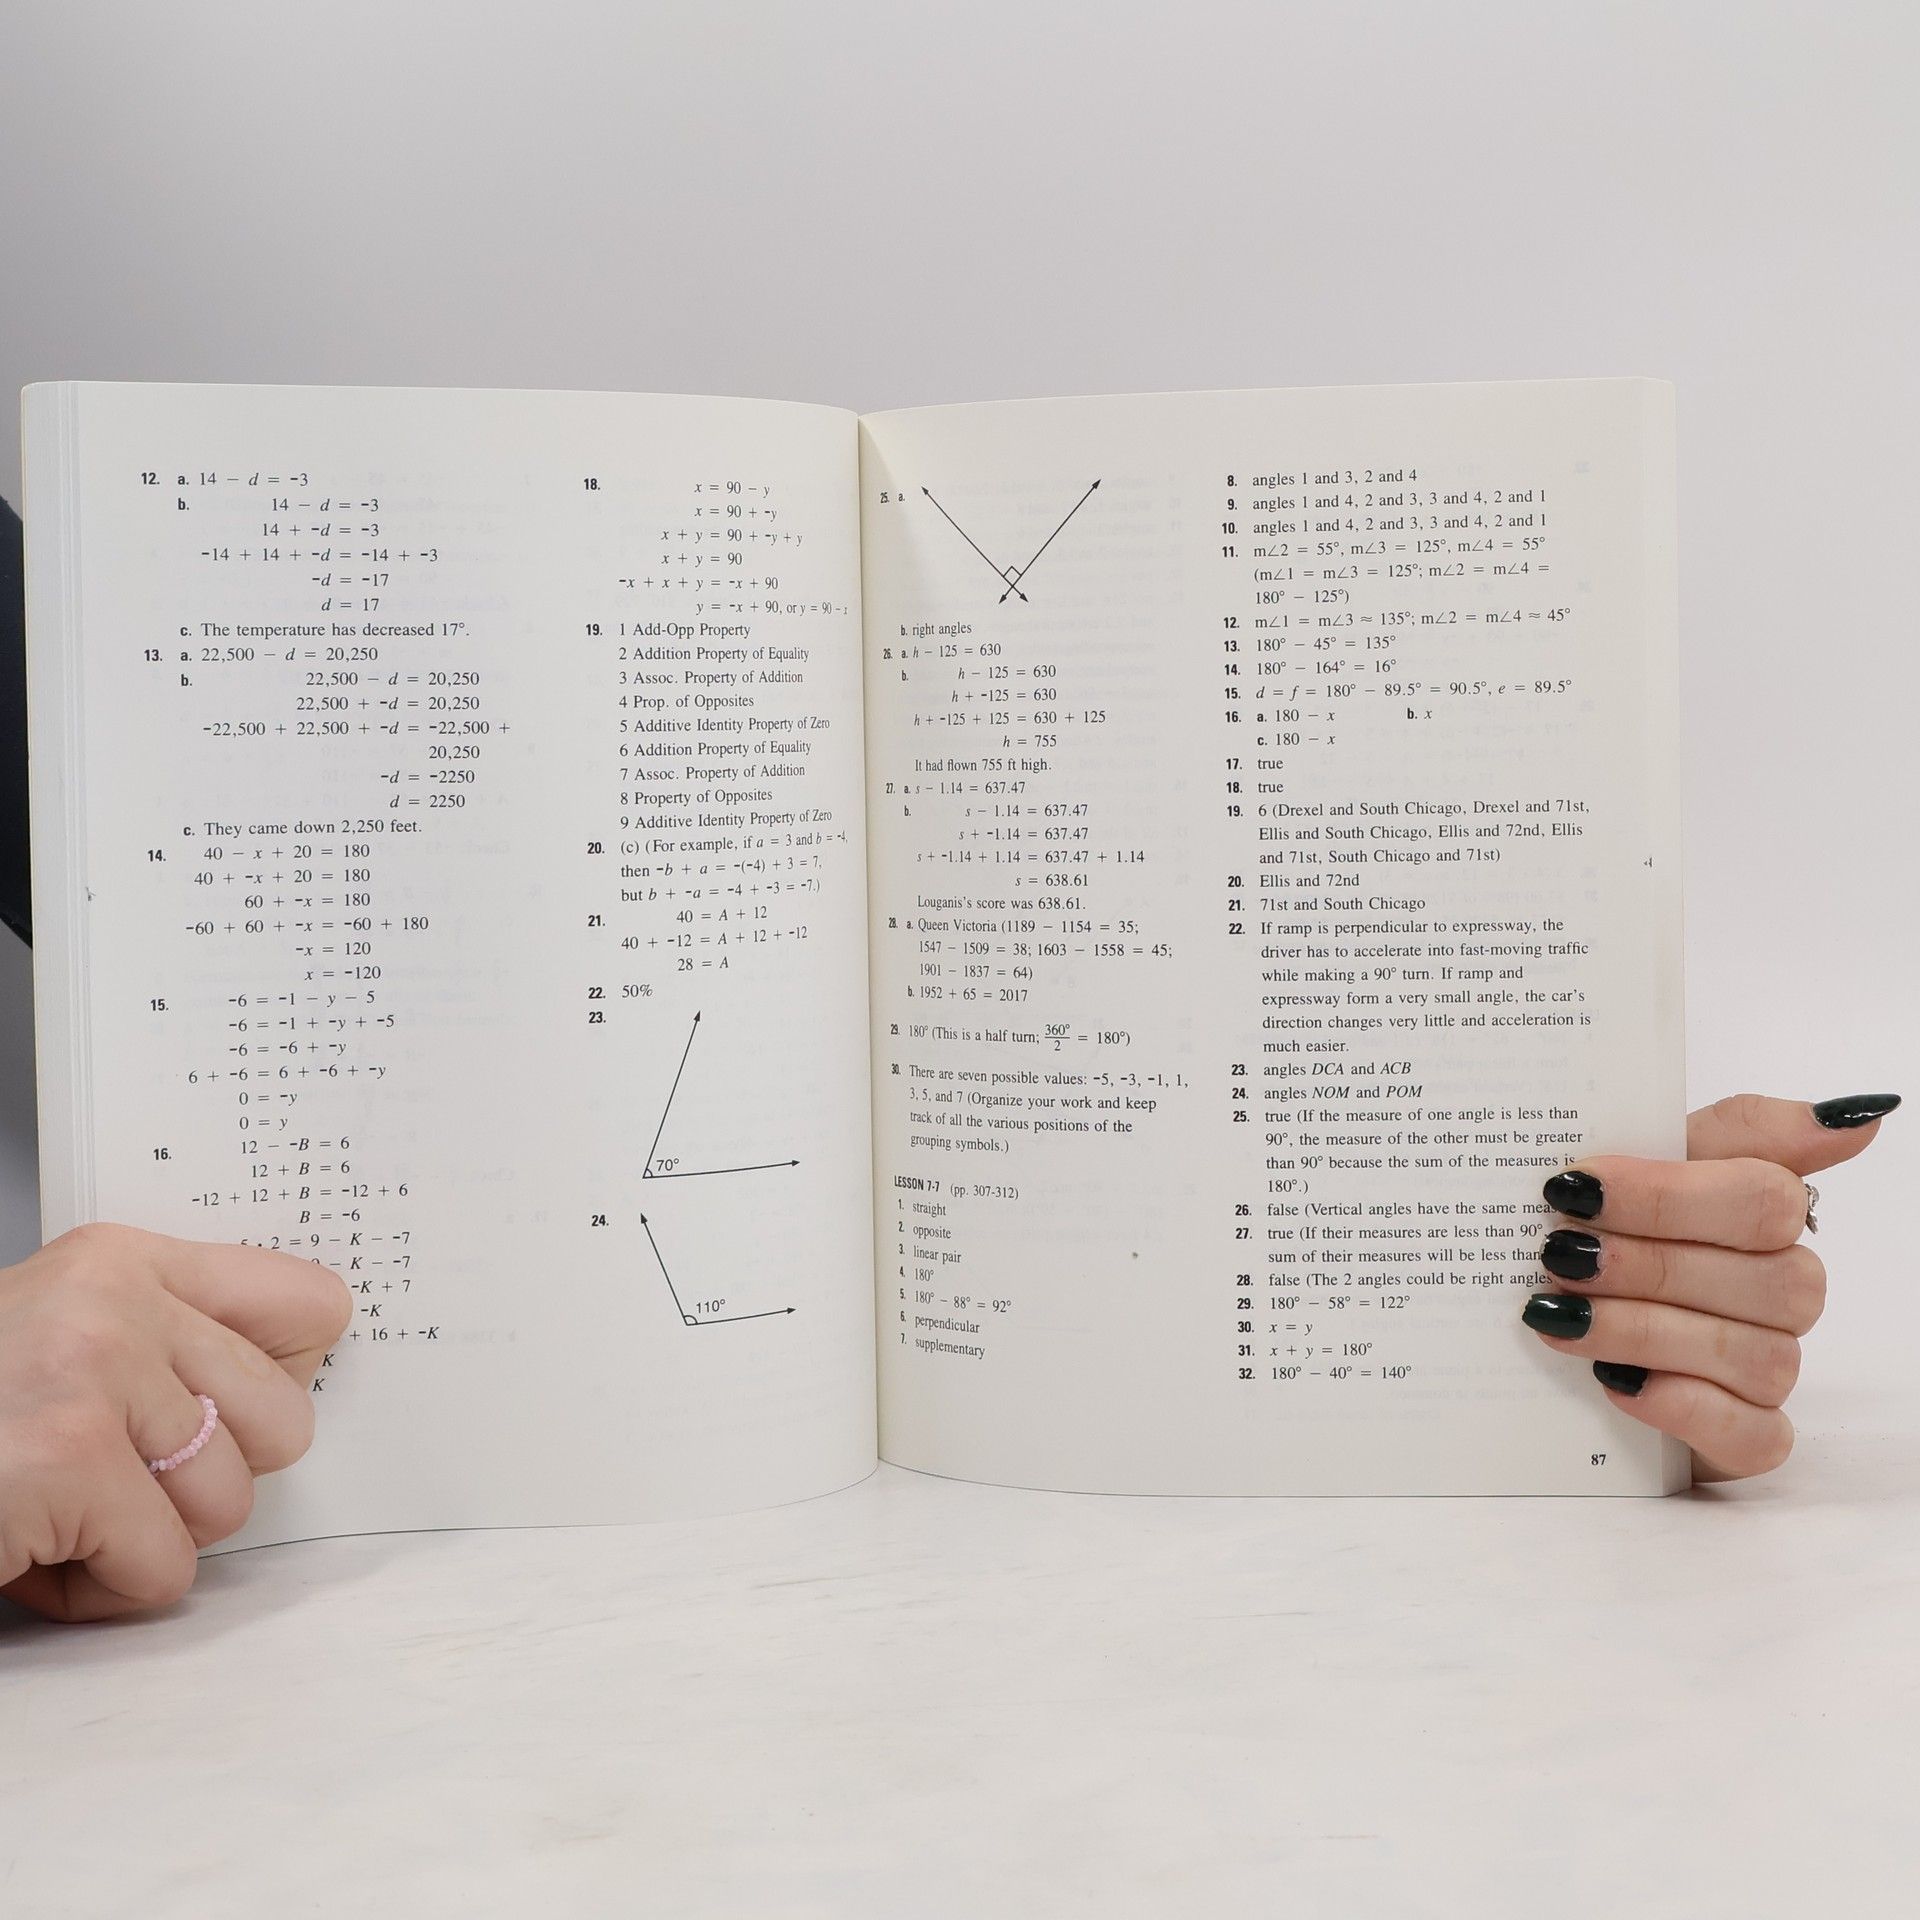 12. a. 14 − d = −3
b. 14 − d = −3
14 + −d = −3
−14 + 14 + −d = −14 + −3
−d = −17
d = 17
c. The temperature has decreased 17°.
13. a. 22,500 − d = 20,250
b. 22,500 − d = 20,250
22,500 + −d = 20,250
−22,500 + 22,500 + −d = −22,500 +
20,250
−d = −2250
d = 2250
c. They came down 2,250 feet.
14. 40 − x + 20 = 180
40 + −x + 20 = 180
60 + −x = 180
−60 + 60 + −x = −60 + 180
−x = 120
x = −120
15. −6 = −1 − y − 5
−6 = −1 + −y + −5
−6 = −6 + −y
6 + −6 = 6 + −6 + −y
0 = −y
0 = y
16. 12 − −B = 6
12 + B = 6
−12 + 12 + B = −12 + 6
B = −6
5 · 2 = 9 − K − −7
− K − −7
−K + 7
−K
+ 16 + −K
K
K
18. x = 90 − y
x = 90 + −y
x + y = 90 + −y + y
x + y = 90
−x + x + y = −x + 90
y = −x + 90, or y = 90 − x
19. 1 Add-Opp Property
2 Addition Property of Equality
3 Assoc. Property of Addition
4 Prop. of Opposites
5 Additive Identity Property of Zero
6 Addition Property of Equality
7 Assoc. Property of Addition
8 Property of Opposites
9 Additive Identity Property of Zero
20. (c) (For example, if a = 3 and b = −4,
then −b + a = −(−4) + 3 = 7,
but b + −a = −4 + −3 = −7.)
21. 40 = A + 12
40 + −12 = A + 12 + −12
28 = A
22. 50%
23.
70°
24.
110°
25. a.
b. right angles
26. a. h − 125 = 630
b. h − 125 = 630
h + −125 = 630
h + −125 + 125 = 630 + 125
h = 755
It had flown 755 ft high.
27. a. s − 1.14 = 637.47
b. s − 1.14 = 637.47
s + −1.14 = 637.47
s + −1.14 + 1.14 = 637.47 + 1.14
s = 638.61
Louganis's score was 638.61.
28. a. Queen Victoria (1189 − 1154 = 35;
1547 − 1509 = 38; 1603 − 1558 = 45;
1901 − 1837 = 64)
b. 1952 + 65 = 2017
29. 180° (This is a half turn; 360°/2 = 180°)
30. There are seven possible values: −5, −3, −1, 1,
3, 5, and 7 (Organize your work and keep
track of all the various positions of the
grouping symbols.)
LESSON 7-7 (pp. 307-312)
1. straight
2. opposite
3. linear pair
4. 180°
5. 180° − 88° = 92°
6. perpendicular
7. supplementary
8. angles 1 and 3, 2 and 4
9. angles 1 and 4, 2 and 3, 3 and 4, 2 and 1
10. angles 1 and 4, 2 and 3, 3 and 4, 2 and 1
11. m∠2 = 55°, m∠3 = 125°, m∠4 = 55°
(m∠1 = m∠3 = 125°; m∠2 = m∠4 =
180° − 125°)
12. m∠1 = m∠3 ≈ 135°; m∠2 = m∠4 ≈ 45°
13. 180° − 45° = 135°
14. 180° − 164° = 16°
15. d = f = 180° − 89.5° = 90.5°, e = 89.5°
16. a. 180 − x b. x
c. 180 − x
17. true
18. true
19. 6 (Drexel and South Chicago, Drexel and 71st,
Ellis and South Chicago, Ellis and 72nd, Ellis
and 71st, South Chicago and 71st)
20. Ellis and 72nd
21. 71st and South Chicago
22. If ramp is perpendicular to expressway, the
driver has to accelerate into fast-moving traffic
while making a 90° turn. If ramp and
expressway form a very small angle, the car's
direction changes very little and acceleration is
much easier.
23. angles DCA and ACB
24. angles NOM and POM
25. true (If the measure of one angle is less than
90°, the measure of the other must be greater
than 90° because the sum of the measures is
180°.)
26. false (Vertical angles have the same
27. true (If their measures are less than 90°
sum of their measures will be less than
28. false (The 2 angles could be right angles
29. 180° − 58° = 122°
30. x = y
31. x + y = 180°
32. 180° − 40° = 140°
87